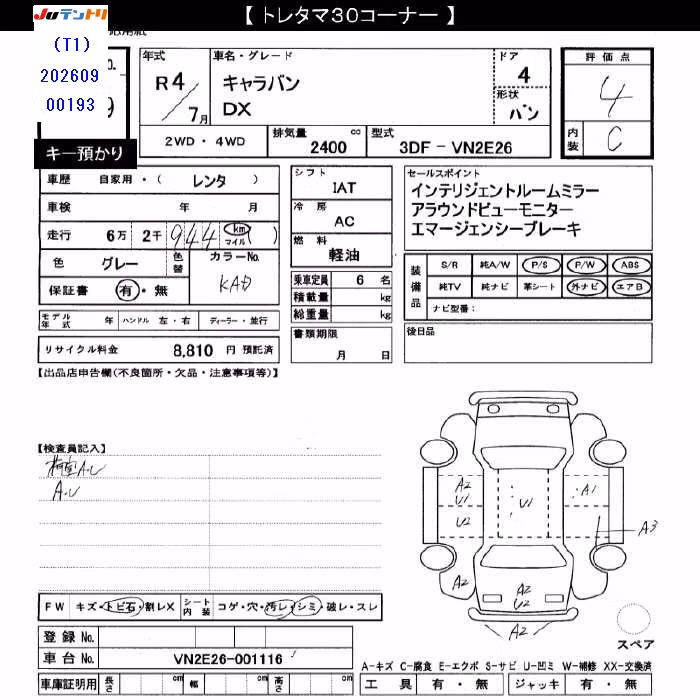 【 トレタマ30コーナー 】
JUテントリ
(T1)
202609
00193
キー預かり
年式 車名・グレード ドア 評価点
R4/7月 キャラバン 4 4
DX 形状 バン 内装 C
2WD・4WD 排気量 2400 cc 型式 3DF-VN2E26
車歴 自家用・( レンタ )
車検 年 月
走行 6万 2千 944 km マイル ( )
色 グレー 色替 カラーNo. KAD
保証書 有・無
モデル年式 年 ハンドル 左・右 ディーラー・並行
リサイクル料金 8,810 円 預託済
シフト IAT
冷房 AC
燃料 軽油
乗車定員 6 名
積載量 kg
総重量 kg
書類期限
月 日
セールスポイント
インテリジェントルームミラー
アラウンドビューモニター
エマージェンシーブレーキ
装備品 S/R 純A/W P/S P/W ABS
純TV 純ナビ 革シート 外ナビ エアB
ナビ型番：
後日品
【出品店申告欄(不良箇所・欠品・注意事項等)】
【検査員記入】
荷室A.U
A.U
FW キズ・トビ石・割レX シート内装 コゲ・穴・汚レ・シミ・破レ・スレ
登録 No.
車台 No. VN2E26-001116
車庫証明用 長さ cm 幅 cm 高さ cm
A2
U1
U2
U1
A1
A3
A2
A2
U2
A2
A2
スペア
A-キズ C-腐食 E-エクボ S-サビ U-凹ミ W-補修 XX-交換済
工具 有・無 ジャッキ 有・無